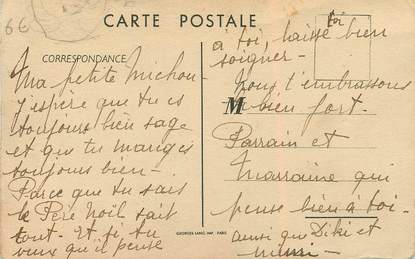 6€
CARTE POSTALE
CORRESPONDANCE
Ma petite Michou -
J'espère que tu es
toujours bien sage
et que tu manges
toujours bien -
Parce que tu sais
le Père Noël sait
tout. Et si tu
veux qu'il pense
toi
à toi, laisse bien
soigner -
Nous t'embrassons
M bien fort -
Parrain et
Marraine qui
pense bien à toi -
ainsi que Diki et
GEORGES LANG, IMP. PARIS